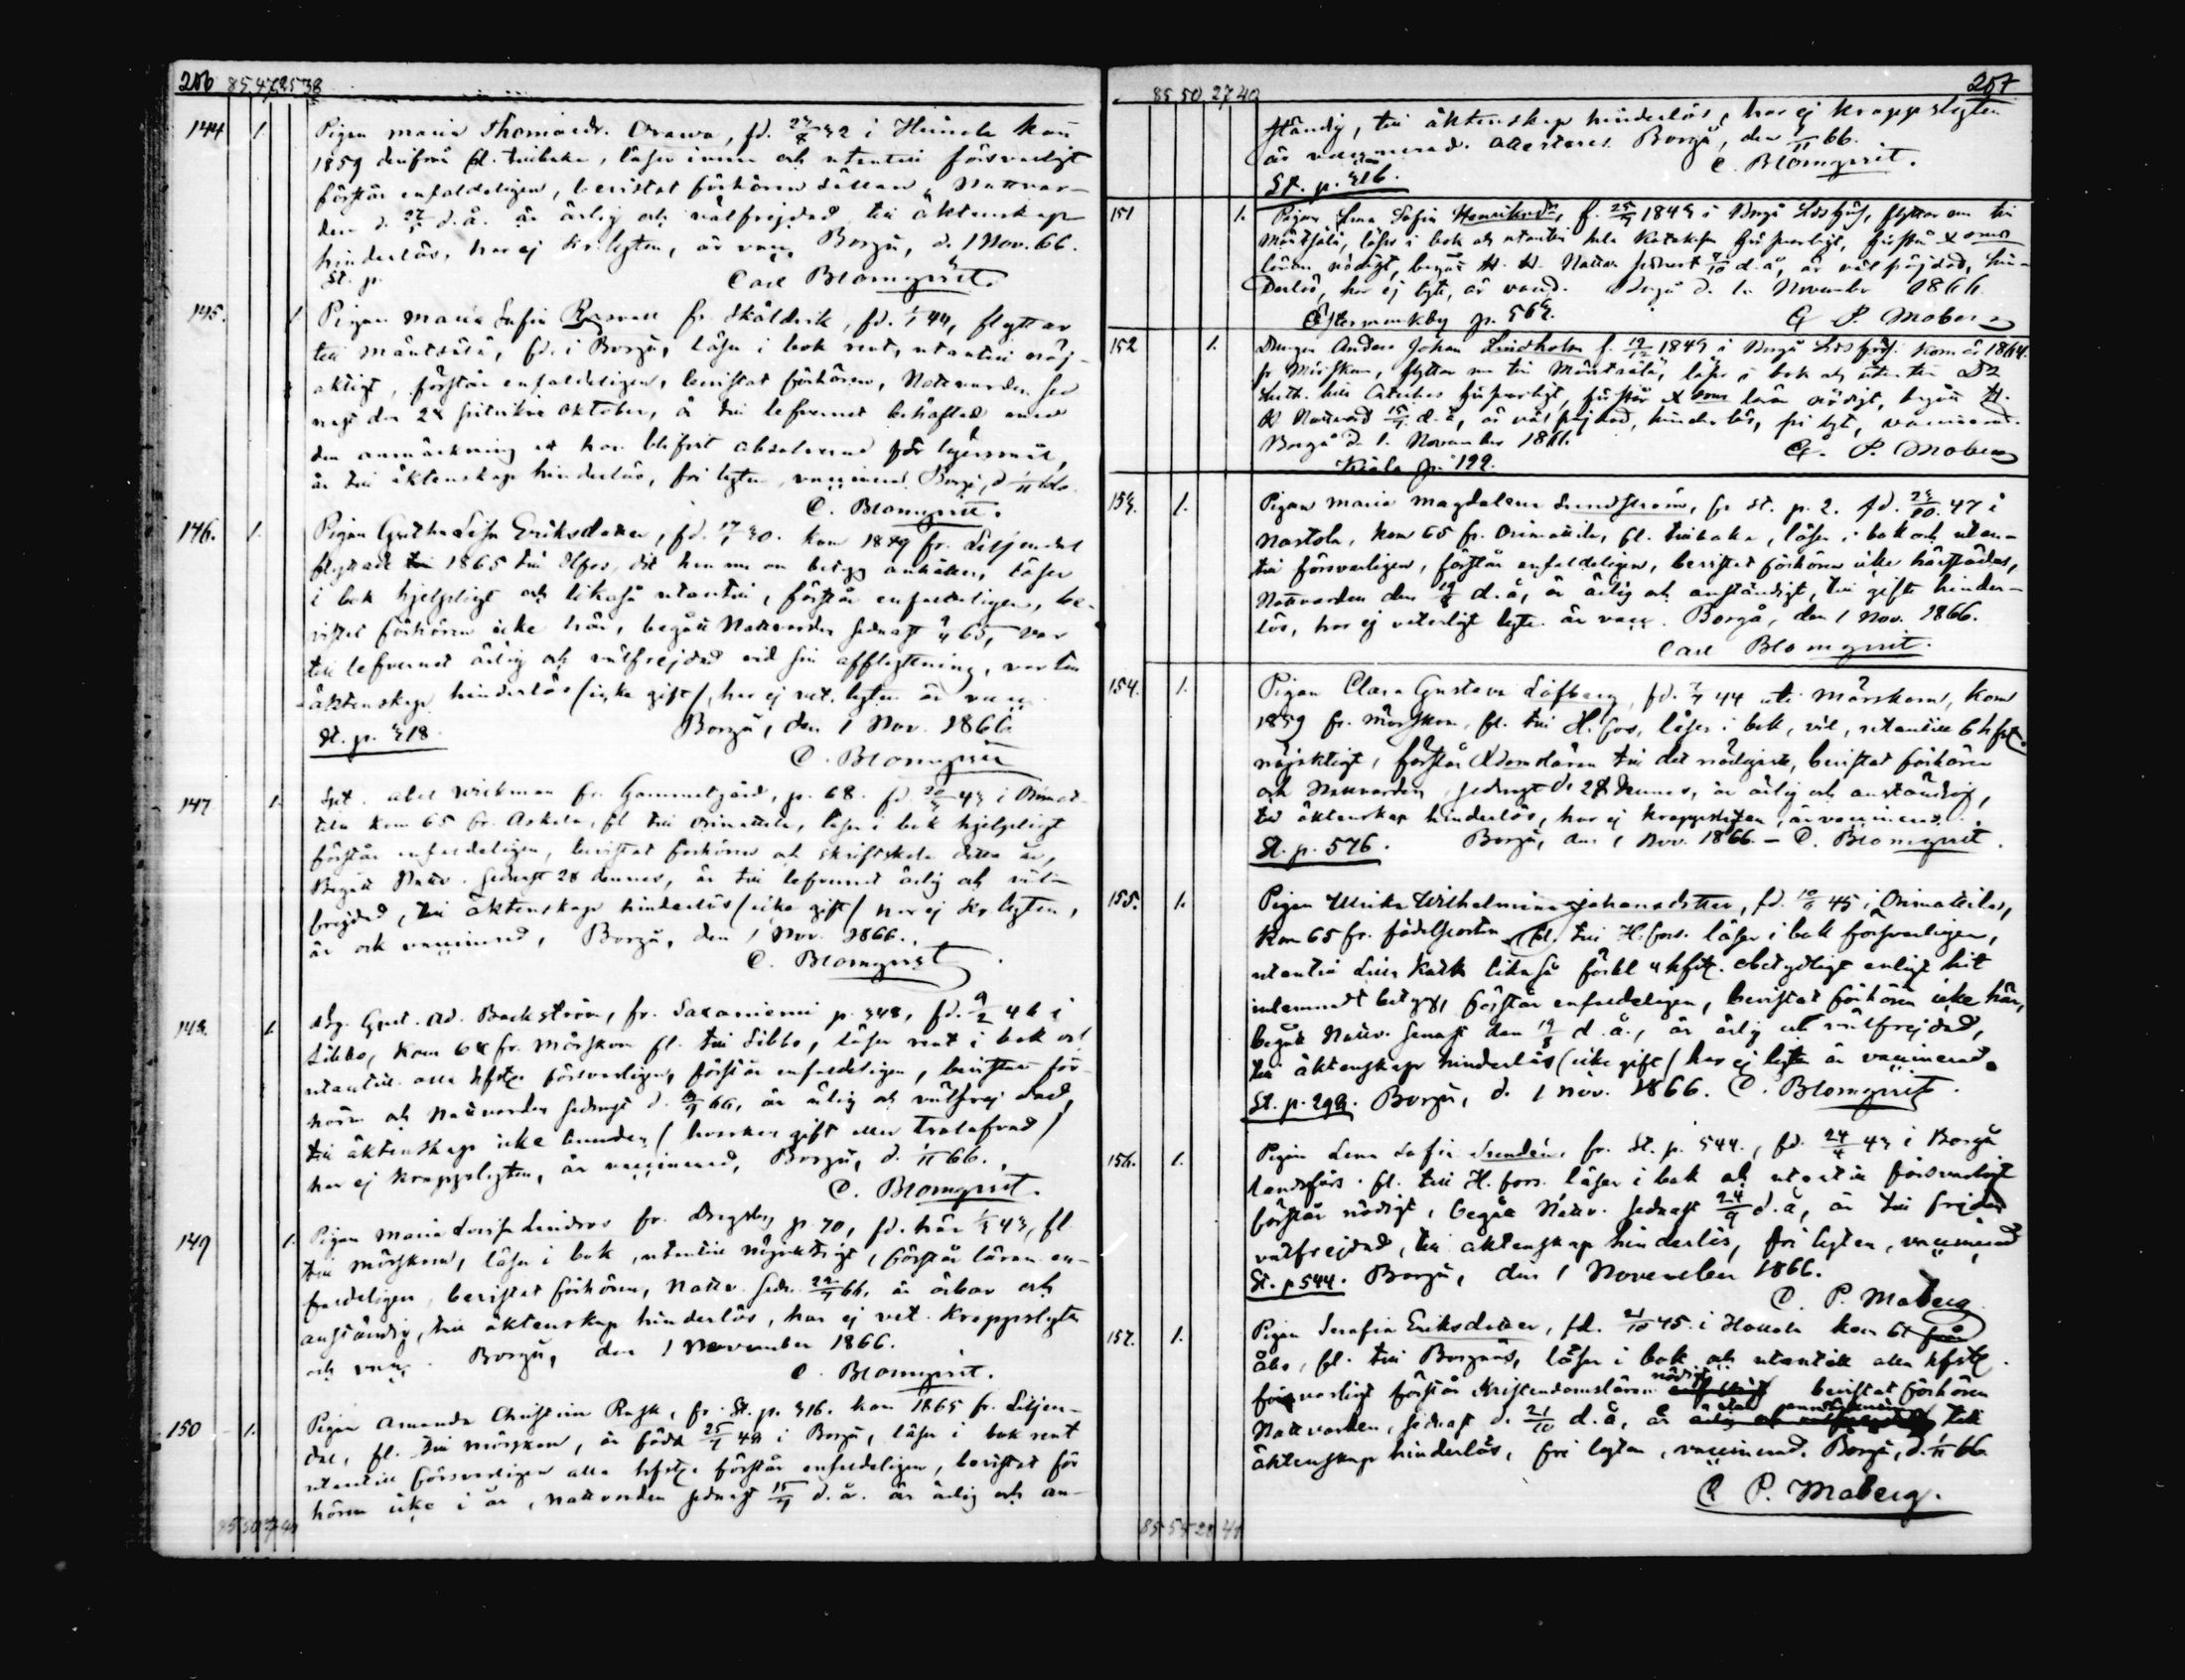 206 85 47 25 38
144 1. Pigan Maria Thomasdr. Orawa, fd. 24/8 42 i Heinola kom
1859 derifrån fl. tillbaka, läser innan och utantill försvarligt
förstår enfaldeligen, bevistat förhören sällan, Nattvar-
den d. d. å. är ärlig och välfrejdad till äktenskap
hinderlös, har ej kr. lyten, är vacc. Borgå, d. 1 Nov. 66.
St. p. Carl Blomqvist
145. 1 Pigan Maria Sofia fr. Sköldvik, fd. 44, flyttar
till Mäntsälä, fd. i Borgå, läser i bok rent, utantill nöj-
aktigt, förstår enfaldeligen, bevistat förhören, Nattvarden sed
nast den 28 sistvikne Oktober, är till lefvernet behäftad med
den anmärkning at har blifvit absolverad för lägersmål,
är till äktenskap hinderlös, fri lyten, vaccinerad Borgå, d. 1/11 66.
C. Blomqvist.
146. 1. Pigan Greta Lisa Eriksdotter, fd. 17/1 30. kom 1849 fr. Liljendal
flyttade till 1865 till Hfors, dit henne nu betyg anhålles, läser
i bok hjelpligt och likaså utantill, förstår enfaldeligen, be-
vistat förhören icke här, begått Nattvarden sednast 65, var
till lefvernet ärlig och välfrejdad vid sin afflyttning, var till
äktenskap hinderlös (icke gift), har ej vet. lyten är vacc.
St. p. 318. Borgå, den 1 Nov. 1866
C. Blomqvist
147 1. Abel Wickman fr. Gammelgård, p. 68. fd. 43 i Orimat-
tila kom 65 fr. Askola, fl till Orimattila, läser i bok hjelpligt
förstår enfaldeligen, bevistat förhören och skriftskola detta år,
Begått Nattv. sednast 28 dennes, är till lefvernet ärlig och väl-
frejdad, till äktenskap hinderlös (icke gift) har ej kr lyten,
är ock vaccinerad, Borgå, den 1 Nov. 1866.
C. Blomqvist
148. 1. Dg. Gust. Ad. Backström, fr. Saxaniemi p. 348, fd. 9/2 46 i
Sibbo, kom 64 fr. Mörskom fl. till Sibbo, läser rent i bok och
utantill alla hfst. försvarligen, förstår enfaldeligen, bevistat för-
hören och Nattvarden sednast d. 66, är ärlig och välfrejdad,
till äktenskap icke bunden (hvarken gift eller trolofvad)
har ej kroppslyten, är vaccinerad, Borgå, d. 1/11 66.
C. Blomqvist.
149 1. Pigan Maria Lovisa Lindros fr. p. 70, fd. här 43, fl
till Mörskom, läser i bok, utantill nöjaktigt, förstår läran en-
faldeligen, bevistat förhören, Nattv. sedn. 66, är ärbar och
anständig, till äktenskap hinderlös, har ej vet. kroppslyten
och vacc. Borgå, den 1 November 1866.
C. Blomqvist.
150 1. Pigan Amanda Christina Rask, fr. St. p. 316. kom 1865 fr. Liljen-
dal, fl. till Mörskom, är född 25/1 48 i Borgå, läser i bok rent
utantill försvarligen alla hfst. förstår enfaldeligen, bevistat för
hören icke i år, Nattvarden sednast 15/4 d. å. är ärlig och an-
85 50 27 40
85 50 27 40 207
ständig, till äktenskap hinderlös, har ej kroppslyten
är vaccinerad. Attesteras Borgå, den 1/11 66.
St. p. 316. C. Blomqvist.
151 1. Pigan Lena Sofia Henriksdr, f. 25/9 1843 i Borgå Lds försg, flyttar nu till
Mäntsälä, läser i bok och utantill hela Katekesen försvarligt, förstår Xdoms
läran nödigt, begår H. H. Nattv. sednast d. å, är väl fräjdad, hin-
derlös, har ej lyte, är vacc. Borgå d. 1. November 1866.
Östermunkby p. 562. C P. Moberg
152 1. Drengen Anders Johan Lindholm f. 19/12 1849 i Borgå Lds försg. Kom år 1864
fr Mörskom, flyttar nu till Mäntsälä, läser i bok och utantill D:r
Luth. lilla Cateches försvarligt, förstår Xdoms läran nödigt, begått H.
H Nattvard d. å, är väl fräjdad, hinderlös, fri lyt, vaccinerad.
Borgå d. 1. November 1866.
Kiala p. 192. C. P. Moberg
153. 1. Pigan Maria Magdalena Lundström, fr St. p. 2. fd. 23/10 47 i
Nastola, kom 65 fr. Orimattila, fl. tillbaka, läser i bok och utan-
till försvarligen, förstår enfaldeligen, bevistat förhören icke härstädes,
Nattvarden den 19/8 d. å, är ärlig och anständigt, till gifte hinder-
lös, har ej veterligt lyte är vacc. Borgå, den 1 Nov. 1866.
Carl Blomqvist.
154. 1. Pigan Clara Gustava Löfberg, fd. 44 uti Mörskom, kom
1859 fr. Mörskom, fl. till H.fors, läser i bok, väl, utantill 6 hfst.
nöjaktigt, förstår Xdomsläran till det nödigaste, bevistat förhören
och Nattvarden, sednast d. 28 dennes, är ärlig och anständig,
till äktenskap hinderlös, har ej kroppslyten, är vaccinerad.
St. p. 576. Borgå, den 1 Nov. 1866. – C. Blomqvist.
155. 1. Pigan Ulrika Wilhelmina Johansdotter, fd. 45 i Orimattila,
kom 65 fr. födelseorten fl. till H.fors. läser i bok försvarligen,
utantill lilla Katk likaså förkl 4 hfst. obetydligt enligt hit
inlemnadt betyg, förstår enfaldeligen, bevistat förhören icke här,
begått Nattv. senast den 19/8 d. å., är ärlig och välfrejdad,
till äktenskap hinderlös (icke gift) har ej lyten är vaccinerad.
St. p. 298. Borgå, d. 1 Nov. 1866. C. Blomqvist.
156. 1. Pigan Lena Sofia Lundén, fr. St. p. 544., fd. 24/4 43 i Borgå
landsförs. fl. till H.fors. läser i bok och utantill försvarligt
förstår nödigt, begått Nattv. sednast 24/9 d. å, är till frejden
välfrejdad, till äktenskap hinderlös, fri lyten, vaccinerad
St. p 544. Borgå, den 1 November 1866.
C. P. Moberg
157. 1. Pigan Serafia Eriksdotter, fd. 21/10 45. i Hollola kom 61 från
Åbo, fl. till Borgnäs, läser i bok och utantill alla hfst.
försvarligt förstår kristendomsläran nödigt bevistat förhören
Nattvarden, sednast d. 21/10 d. å, är till
äktenskap hinderlös, fri lyten, vaccinerad. Borgå, d. 1/11 66
C P. Moberg.